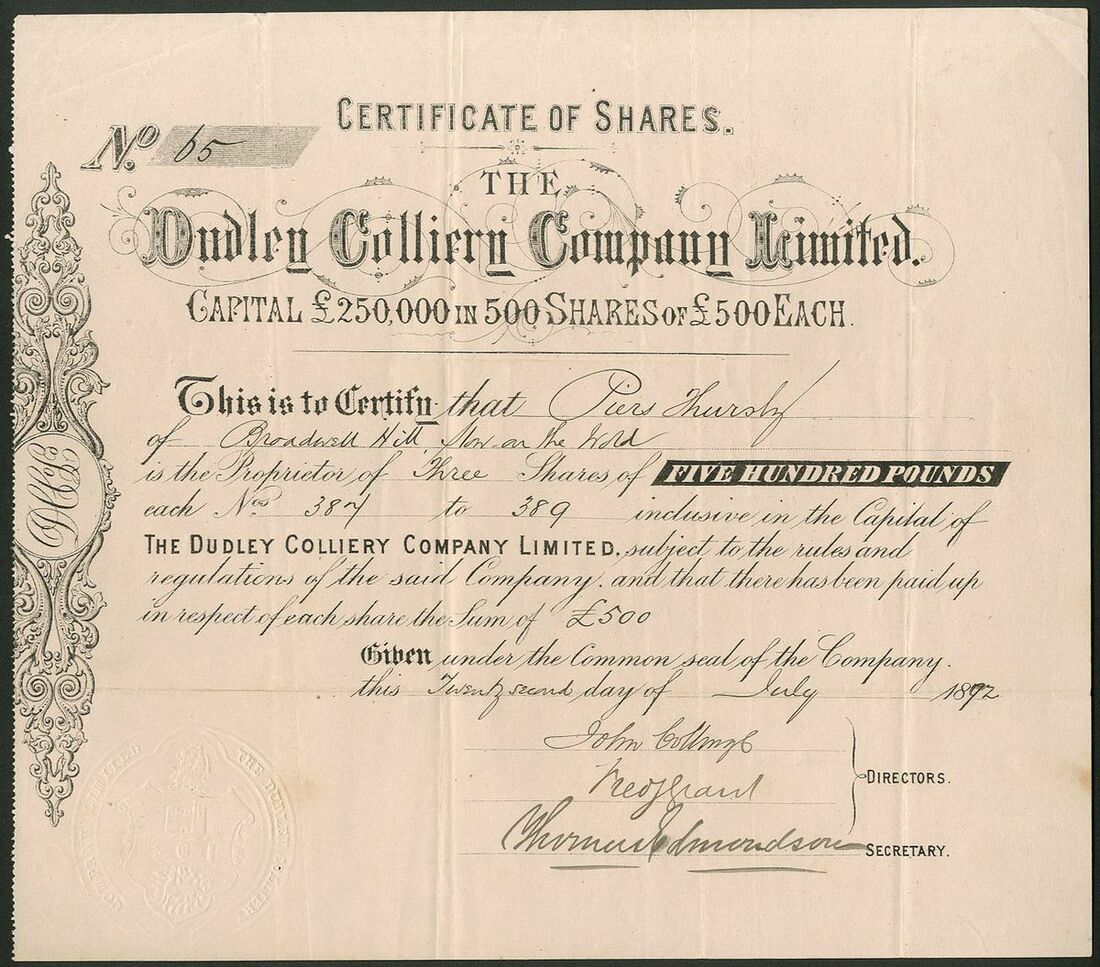 CERTIFICATE OF SHARES.
No. 65
THE
Dudley Colliery Company Limited.
CAPITAL £250,000 IN 500 SHARES OF £500 EACH.
This is to Certify that Piers Thursby
of Broadwell Hill, Stow on the Wold
is the Proprietor of Three Shares of FIVE HUNDRED POUNDS
each Nos 387 to 389 inclusive in the Capital of
THE DUDLEY COLLIERY COMPANY LIMITED, subject to the rules and
regulations of the said Company, and that there has been paid up
in respect of each share the Sum of £500
Given under the Common seal of the Company.
this Twenty second day of July 1892
John
DIRECTORS.
Thomas Edmondson SECRETARY.
DCC
THE DUDLEY COLLIERY COMPANY LIMITED